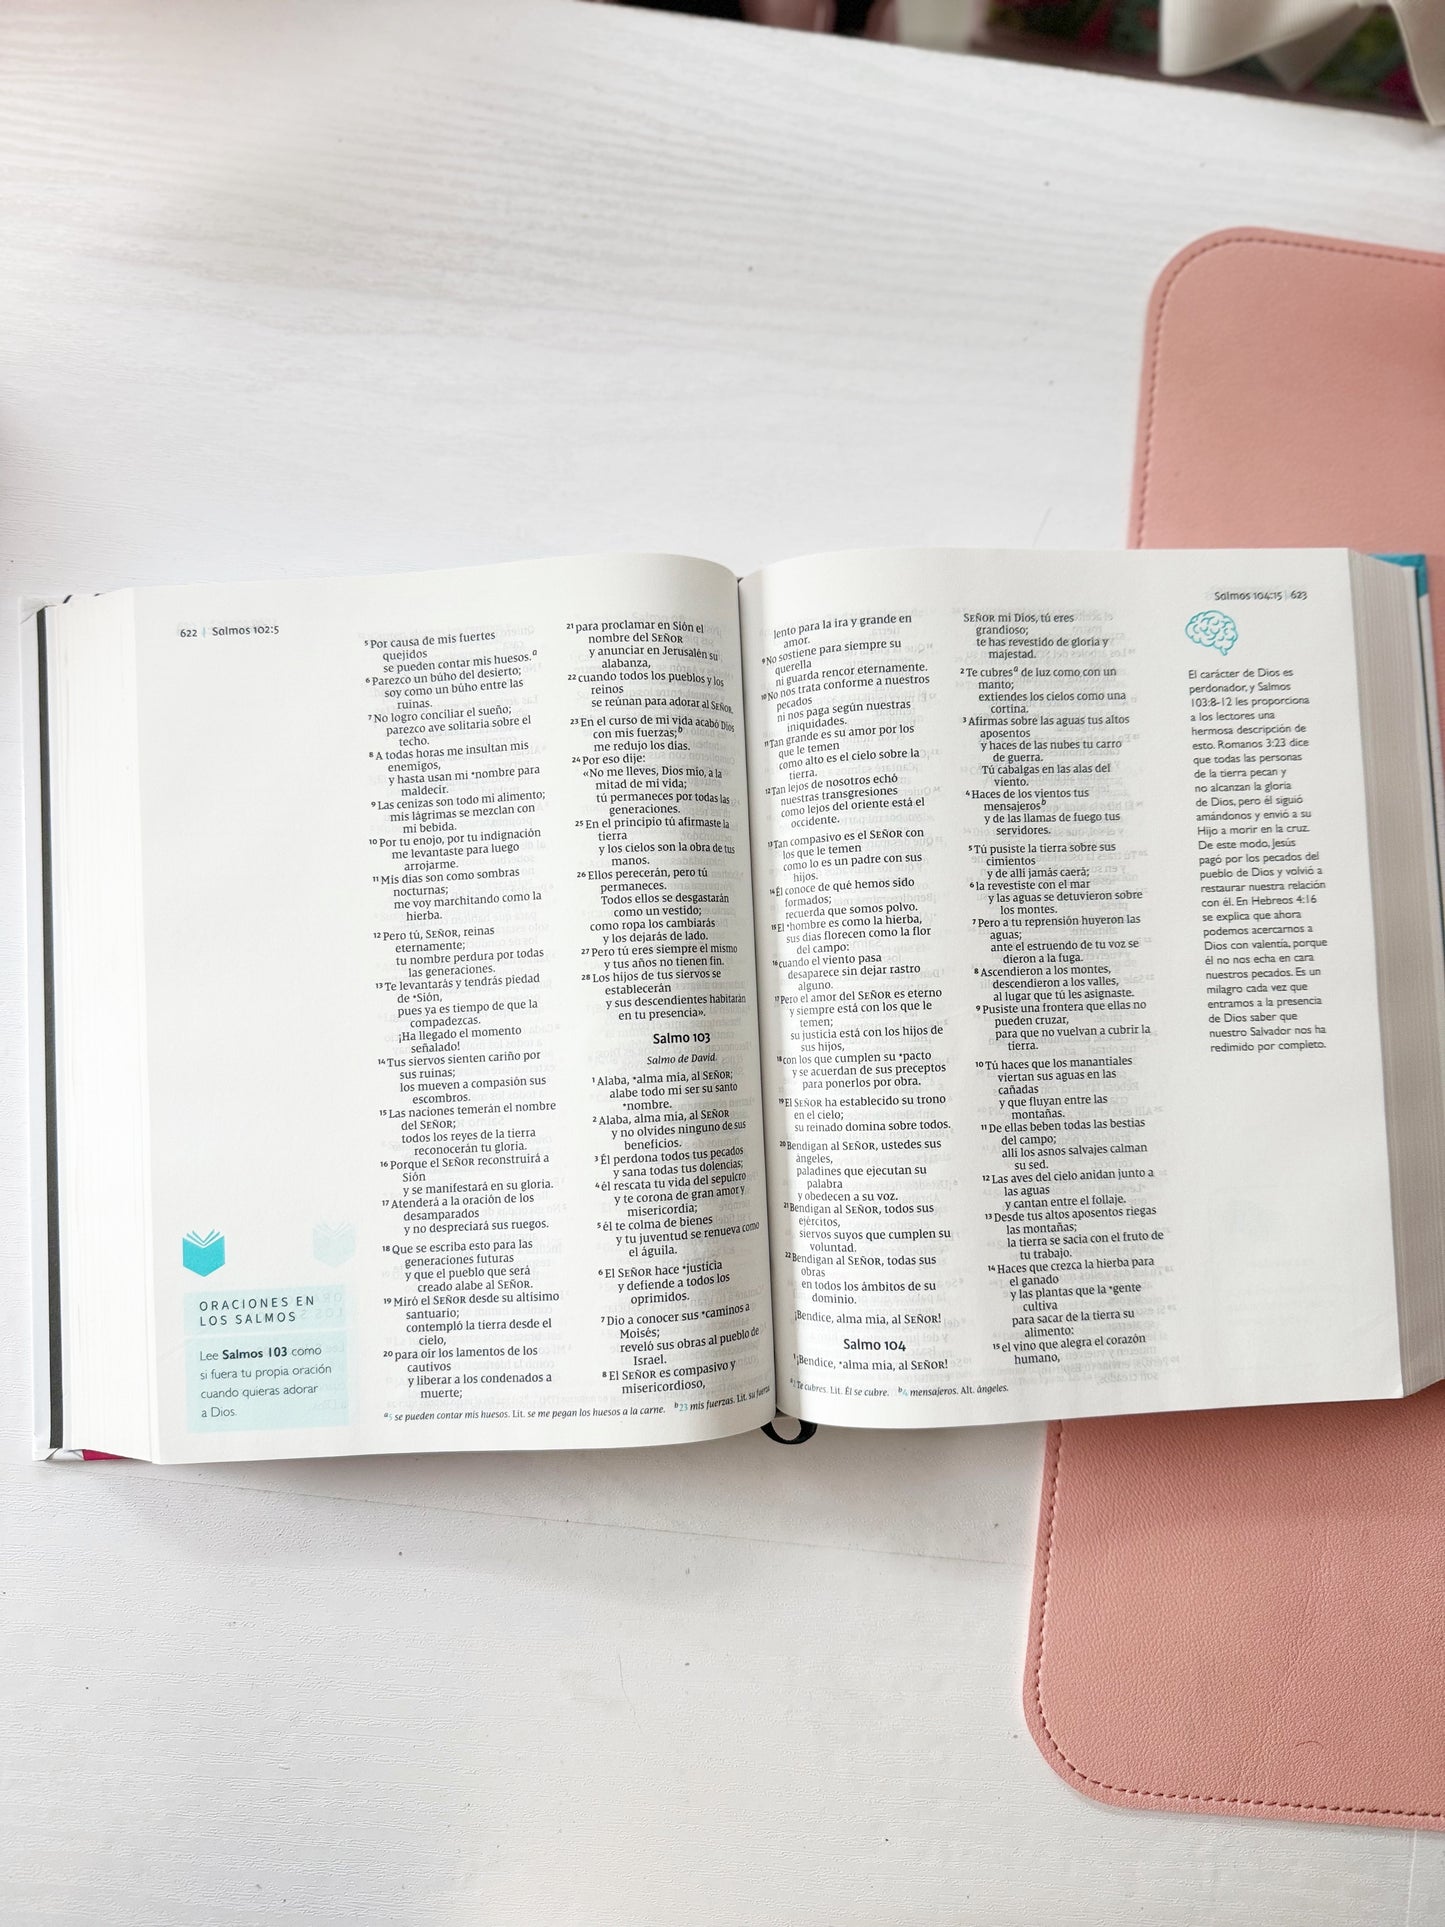 622 | Salmos 102:5
5 Por causa de mis fuertes
quejidos
se pueden contar mis huesos.a
6 Parezco un búho del desierto;
soy como un búho entre las
ruinas.
7 No logro conciliar el sueño;
parezco ave solitaria sobre el
techo.
8 A todas horas me insultan mis
enemigos,
y hasta usan mi *nombre para
maldecir.
9 Las cenizas son todo mi alimento;
mis lágrimas se mezclan con
mi bebida.
10 Por tu enojo, por tu indignación
me levantaste para luego
arrojarme.
11 Mis días son como sombras
nocturnas;
me voy marchitando como la
hierba.
12 Pero tú, SEÑOR, reinas
eternamente;
tu nombre perdura por todas
las generaciones.
13 Te levantarás y tendrás piedad
de *Sión,
pues ya es tiempo de que la
compadezcas.
¡Ha llegado el momento
señalado!
14 Tus siervos sienten cariño por
sus ruinas;
los mueven a compasión sus
escombros.
15 Las naciones temerán el nombre
del SEÑOR;
todos los reyes de la tierra
reconocerán tu gloria.
16 Porque el SEÑOR reconstruirá a
Sión
y se manifestará en su gloria.
17 Atenderá a la oración de los
desamparados
y no despreciará sus ruegos.
18 Que se escriba esto para las
generaciones futuras
y que el pueblo que será
creado alabe al SEÑOR.
19 Miró el SEÑOR desde su altísimo
santuario;
contempló la tierra desde el
cielo,
20 para oír los lamentos de los
cautivos
y liberar a los condenados a
muerte;
21 para proclamar en Sión el
nombre del SEÑOR
y anunciar en Jerusalén su
alabanza,
22 cuando todos los pueblos y los
reinos
se reúnan para adorar al SEÑOR.
23 En el curso de mi vida acabó Dios
con mis fuerzas;b
me redujo los días.
24 Por eso dije:
«No me lleves, Dios mío, a la
mitad de mi vida;
tú permaneces por todas las
generaciones.
25 En el principio tú afirmaste la
tierra
y los cielos son la obra de tus
manos.
26 Ellos perecerán, pero tú
permaneces.
Todos ellos se desgastarán
como un vestido;
como ropa los cambiarás
y los dejarás de lado.
27 Pero tú eres siempre el mismo
y tus años no tienen fin.
28 Los hijos de tus siervos se
establecerán
y sus descendientes habitarán
en tu presencia».
Salmo 103
Salmo de David.
1 Alaba, *alma mía, al SEÑOR;
alabe todo mi ser su santo
*nombre.
2 Alaba, alma mía, al SEÑOR
y no olvides ninguno de sus
beneficios.
3 Él perdona todos tus pecados
y sana todas tus dolencias;
4 él rescata tu vida del sepulcro
y te corona de gran amor y
misericordia;
5 él te colma de bienes
y tu juventud se renueva como
el águila.
6 El SEÑOR hace *justicia
y defiende a todos los
oprimidos.
7 Dio a conocer sus *caminos a
Moisés;
reveló sus obras al pueblo de
Israel.
8 El SEÑOR es compasivo y
misericordioso,
a5 se pueden contar mis huesos. Lit. se me pegan los huesos a la carne. b23 mis fuerzas. Lit. su fuerza
ORACIONES EN
LOS SALMOS
Lee Salmos 103 como
si fuera tu propia oración
cuando quieras adorar
a Dios.
Salmos 104:15 | 623
lento para la ira y grande en
amor.
9 No sostiene para siempre su
querella
ni guarda rencor eternamente.
10 No nos trata conforme a nuestros
pecados
ni nos paga según nuestras
iniquidades.
11 Tan grande es su amor por los
que le temen
como alto es el cielo sobre la
tierra.
12 Tan lejos de nosotros echó
nuestras transgresiones
como lejos del oriente está el
occidente.
13 Tan compasivo es el SEÑOR con
los que le temen
como lo es un padre con sus
hijos.
14 Él conoce de qué hemos sido
formados;
recuerda que somos polvo.
15 El *hombre es como la hierba,
sus días florecen como la flor
del campo:
16 cuando el viento pasa
desaparece sin dejar rastro
alguno.
17 Pero el amor del SEÑOR es eterno
y siempre está con los que le
temen;
su justicia está con los hijos de
sus hijos,
18 con los que cumplen su *pacto
y se acuerdan de sus preceptos
para ponerlos por obra.
19 El SEÑOR ha establecido su trono
en el cielo;
su reinado domina sobre todos.
20 Bendigan al SEÑOR, ustedes sus
ángeles,
paladines que ejecutan su
palabra
y obedecen a su voz.
21 Bendigan al SEÑOR, todos sus
ejércitos,
siervos suyos que cumplen su
voluntad.
22 Bendigan al SEÑOR, todas sus
obras
en todos los ámbitos de su
dominio.
¡Bendice, alma mía, al SEÑOR!
Salmo 104
1 ¡Bendice, *alma mía, al SEÑOR!
SEÑOR mi Dios, tú eres
grandioso;
te has revestido de gloria y
majestad.
2 Te cubresa de luz como con un
manto;
extiendes los cielos como una
cortina.
3 Afirmas sobre las aguas tus altos
aposentos
y haces de las nubes tu carro
de guerra.
Tú cabalgas en las alas del
viento.
4 Haces de los vientos tus
mensajerosb
y de las llamas de fuego tus
servidores.
5 Tú pusiste la tierra sobre sus
cimientos
y de allí jamás caerá;
6 la revestiste con el mar
y las aguas se detuvieron sobre
los montes.
7 Pero a tu reprensión huyeron las
aguas;
ante el estruendo de tu voz se
dieron a la fuga.
8 Ascendieron a los montes,
descendieron a los valles,
al lugar que tú les asignaste.
9 Pusiste una frontera que ellas no
pueden cruzar,
para que no vuelvan a cubrir la
tierra.
10 Tú haces que los manantiales
viertan sus aguas en las
cañadas
y que fluyan entre las
montañas.
11 De ellas beben todas las bestias
del campo;
allí los asnos salvajes calman
su sed.
12 Las aves del cielo anidan junto a
las aguas
y cantan entre el follaje.
13 Desde tus altos aposentos riegas
las montañas;
la tierra se sacia con el fruto de
tu trabajo.
14 Haces que crezca la hierba para
el ganado
y las plantas que la *gente
cultiva
para sacar de la tierra su
alimento:
15 el vino que alegra el corazón
humano,
a2 Te cubres. Lit. Él se cubre. b4 mensajeros. Alt. ángeles.
El carácter de Dios es
perdonador, y Salmos
103:8-12 les proporciona
a los lectores una
hermosa descripción de
esto. Romanos 3:23 dice
que todas las personas
de la tierra pecan y
no alcanzan la gloria
de Dios, pero él siguió
amándonos y envió a su
Hijo a morir en la cruz.
De este modo, Jesús
pagó por los pecados del
pueblo de Dios y volvió a
restaurar nuestra relación
con él. En Hebreos 4:16
se explica que ahora
podemos acercarnos a
Dios con valentía, porque
él no nos echa en cara
nuestros pecados. Es un
milagro cada vez que
entramos a la presencia
de Dios saber que
nuestro Salvador nos ha
redimido por completo.